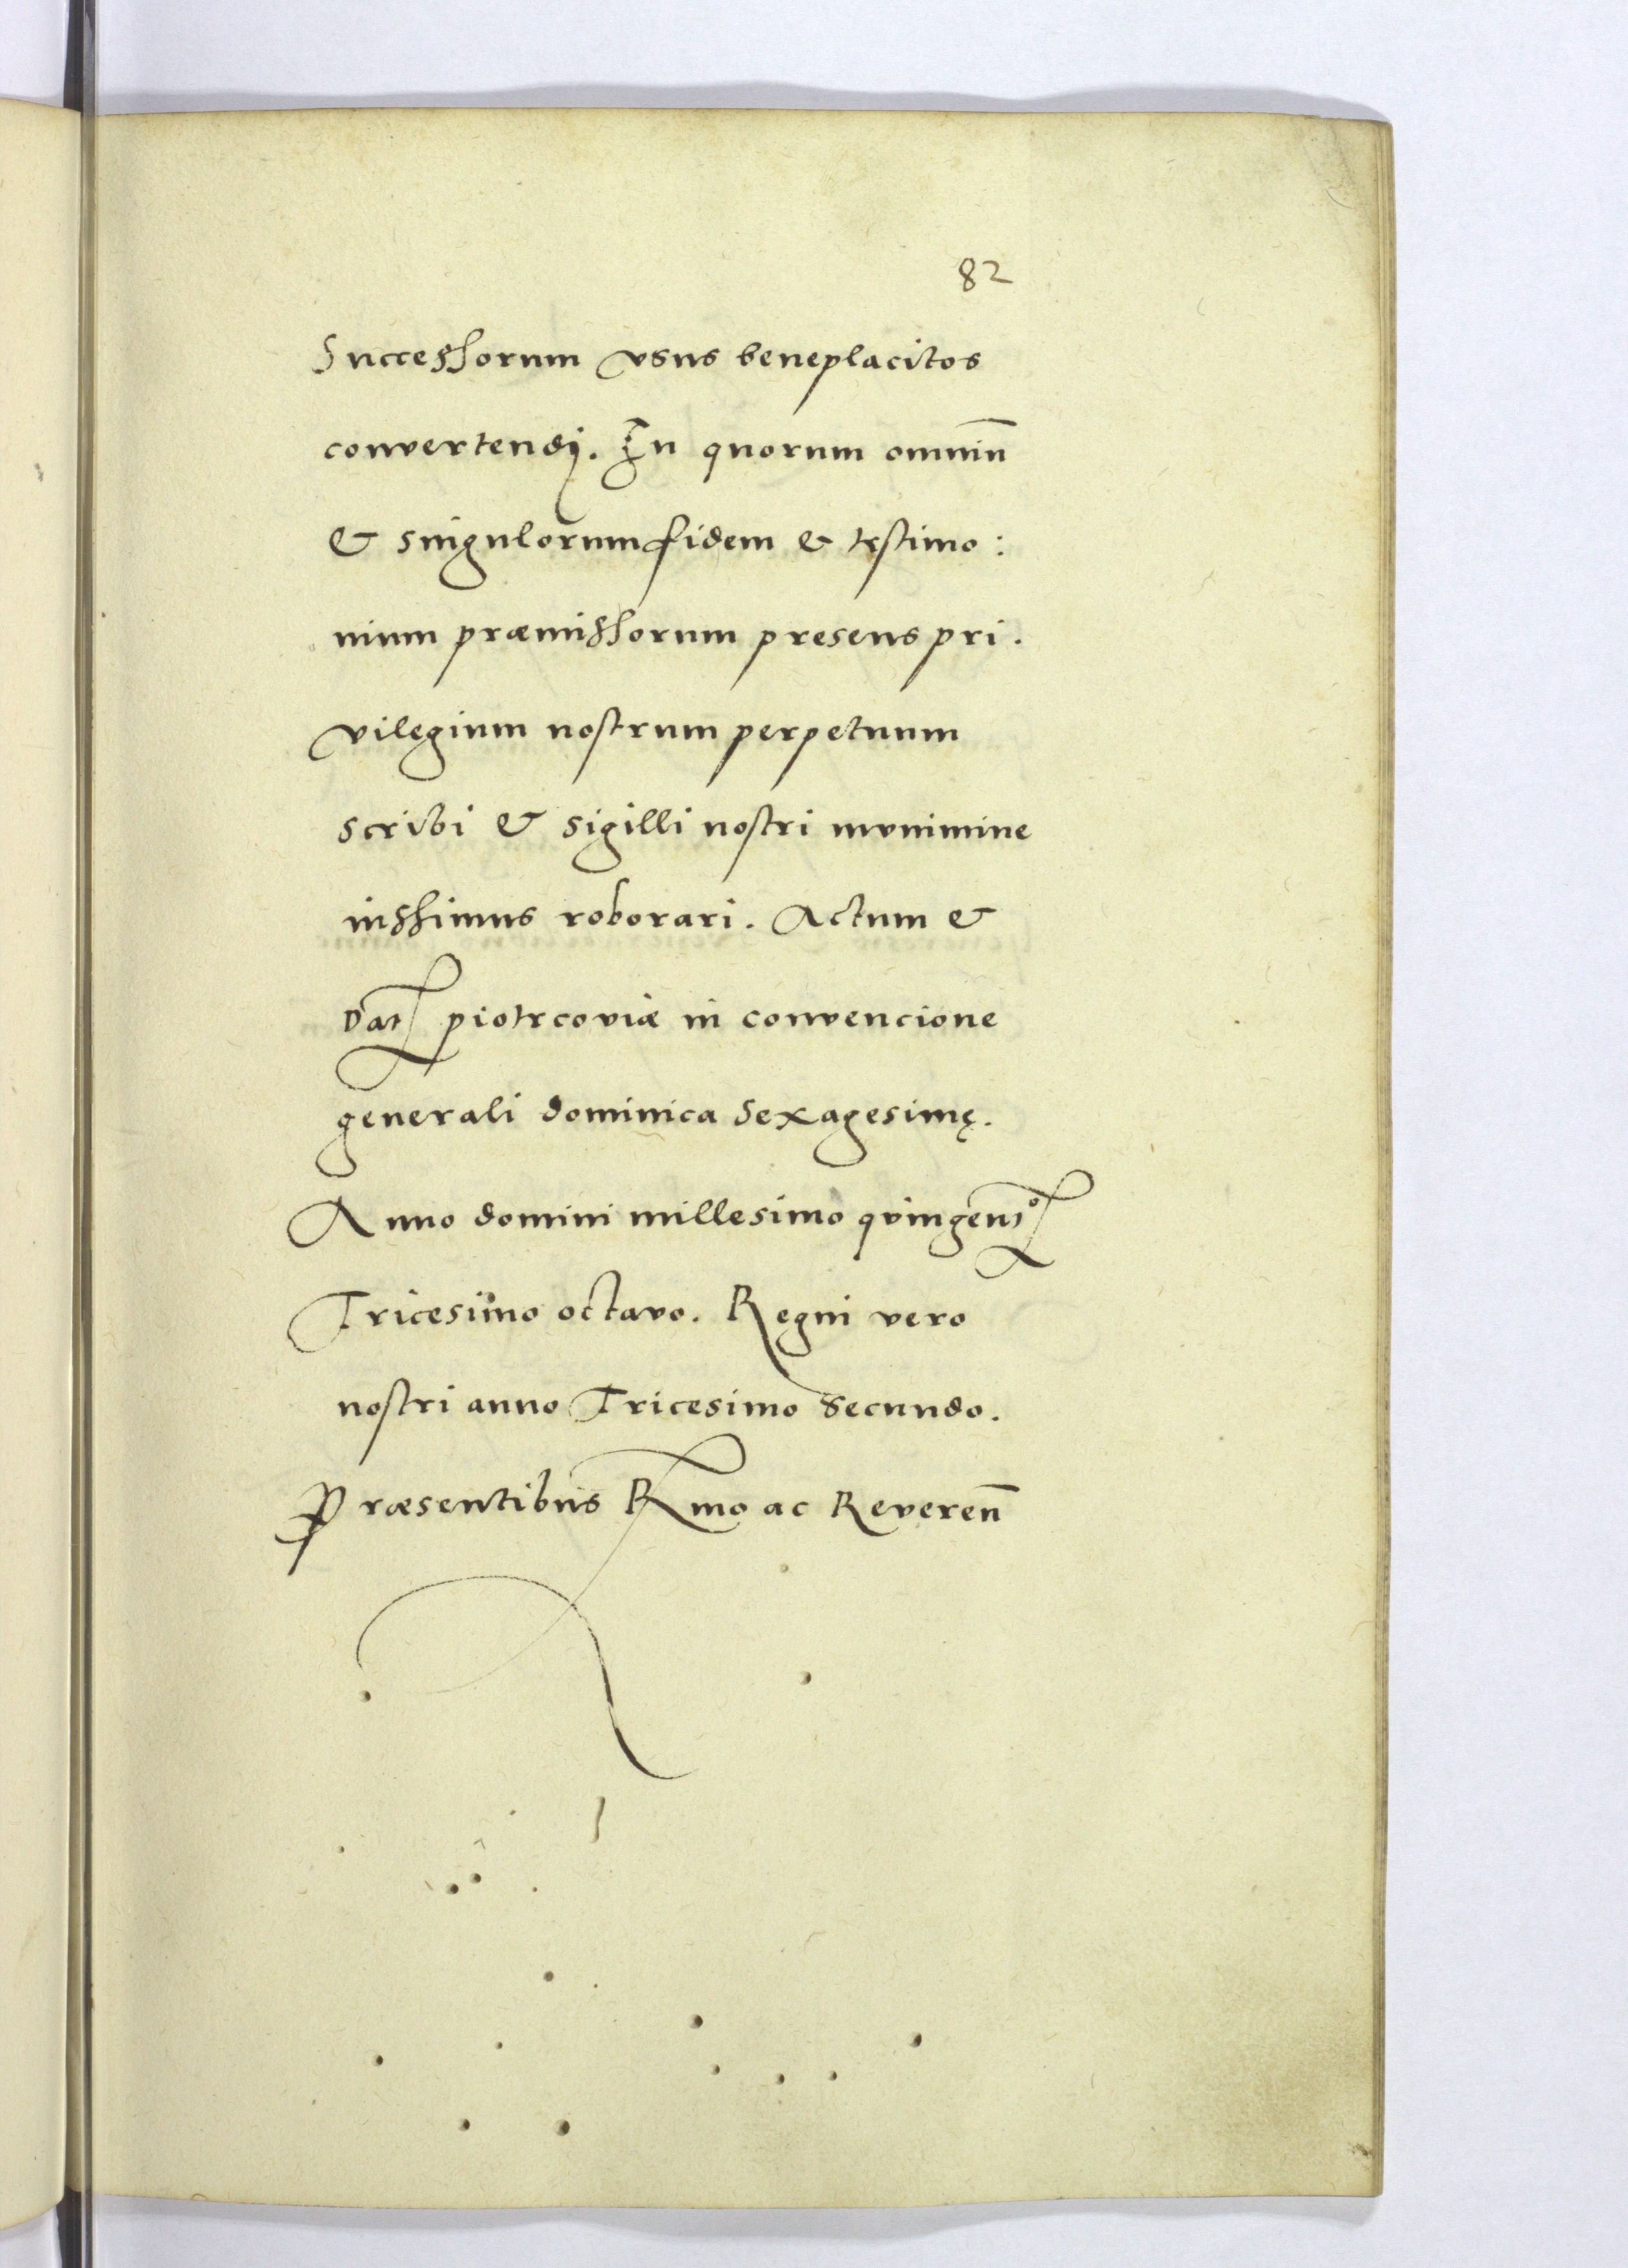 82
Successorum vsus beneplacitos
convertendi. In quorum omniū
& singulorum fidem & testimo:
nium præmissorum presens pri.
vilegium nostrum perpetuum
scribi & sigilli nostri mvnimine
iussimus roborari. Actum &
Dat piotrcoviæ in convencione
generali dominica Sexagesimę.
Anno domini millesimo qvingent͏º
Tricesimo octavo. Regni vero
nostri anno Tricesimo Secundo.
Præsentibus Rmo ac Reveren̄